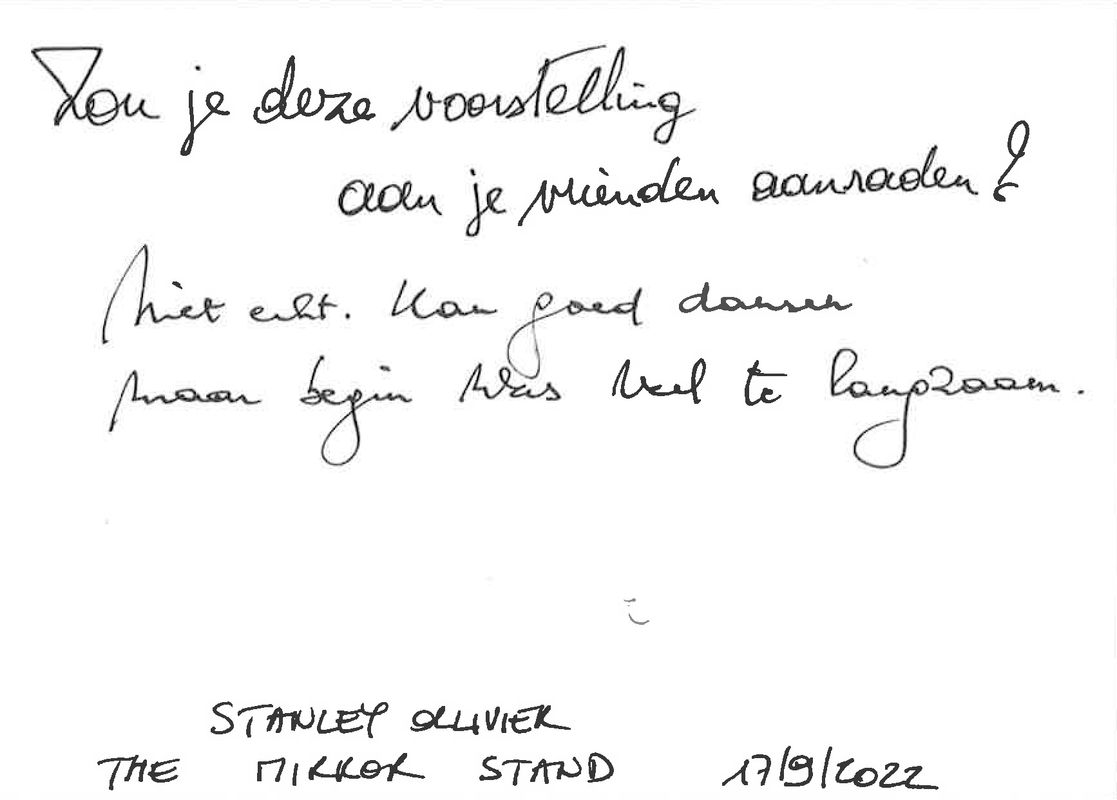 Zou je deze voorstelling
aan je vrienden aanraden?
Niet echt. Kan goed dansen
maar begin was veel te langzaam.
STANLEY OLLIVIER
THE MIRROR STAND 17/9/2022